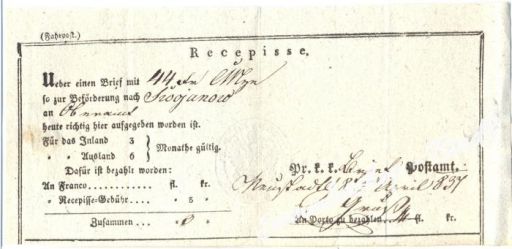 (Fahrpost.)
Recepisse.
Ueber einen Brief mit 44
so zur Beförderung nach Trojanow
an Oberamt
heute richtig hier aufgegeben worden ist.
Für das Inland 3 } Monathe gültig.
„ „ Ausland 6
Dafür ist bezahlt worden:
An Franco . . . . . . . . . . . fl. kr.
„ Recepisse-Gebühr . . . „ 5 „
Zusammen „ „
Pr. k. k. Postamt.
Neustadtl April 837
An Porto zu bezahlen fl. kr.